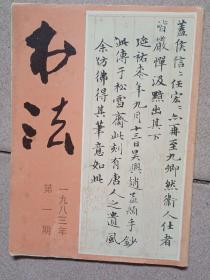 书法
一九八三年
第一期
盖侯信〻任宏〻六再至九卿然衛人任者
皆嚴憚汲黯出其下
延祐柰年九月十三日吴興趙孟頫手鈔
此傳于松雪齋此刻有唐人之遺風
余仿佛得其筆意如此